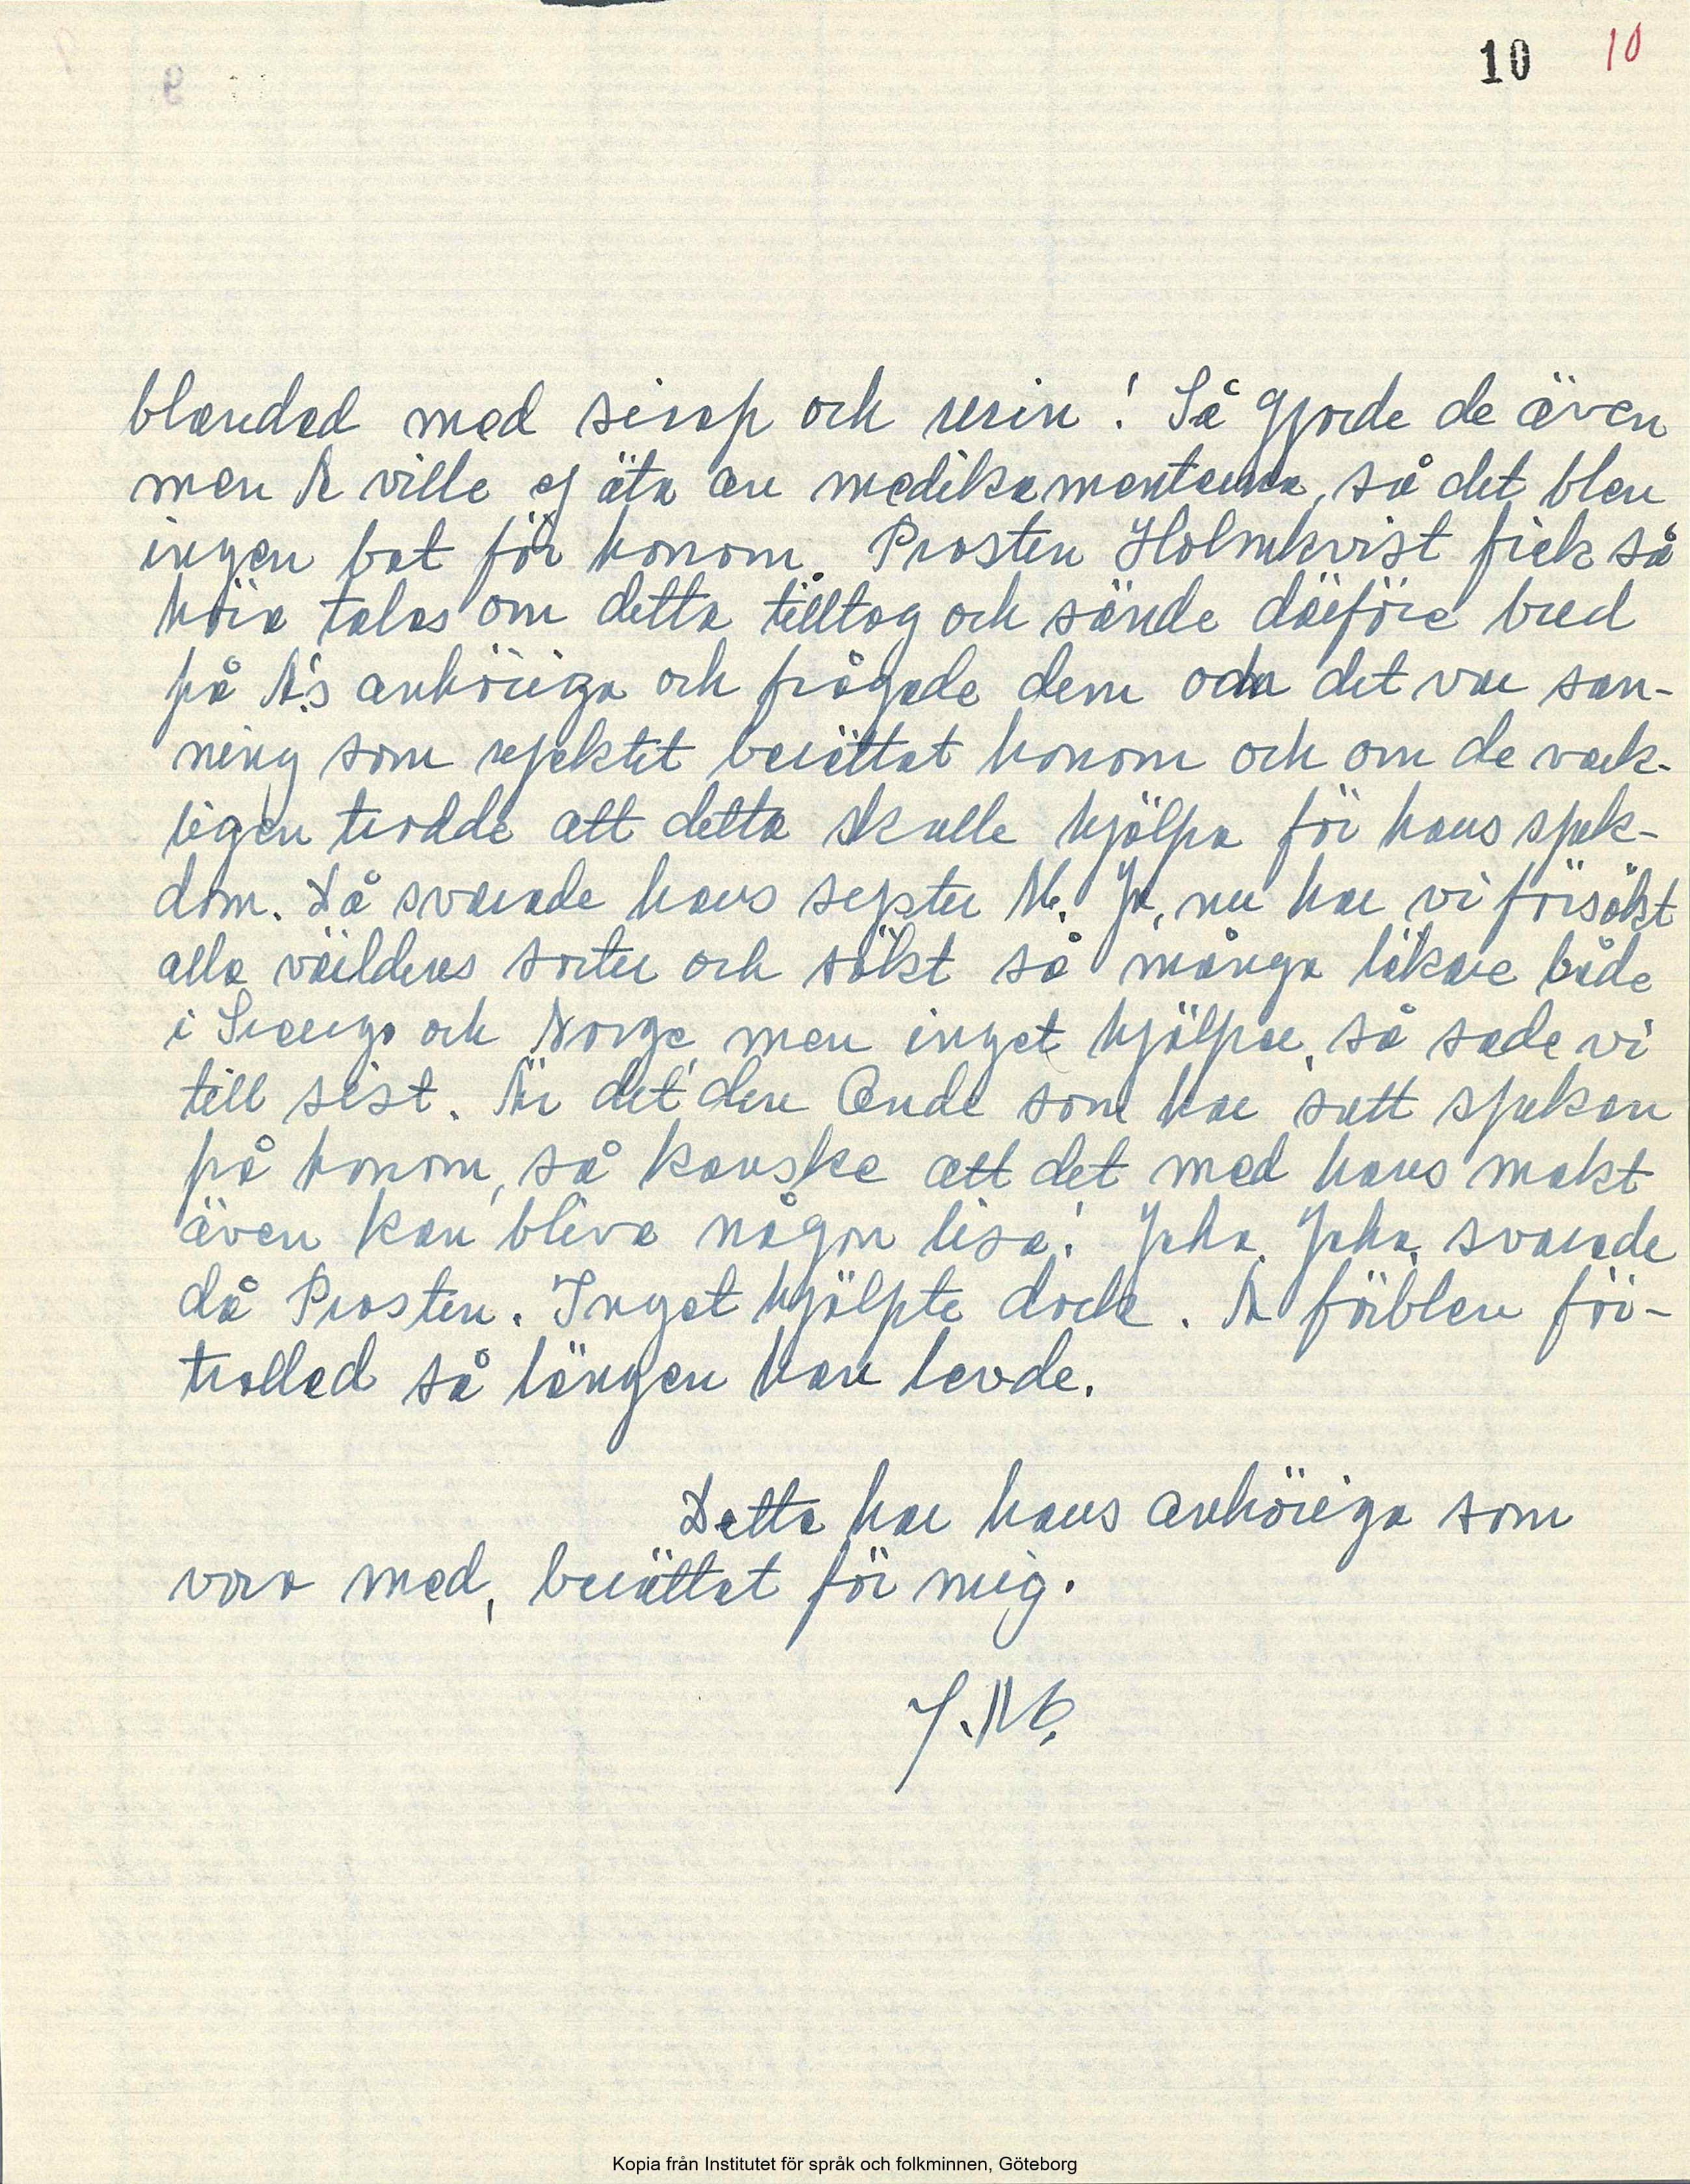 10 10
blandad med sirap och urin! Så gjorde de även
men A ville ej äta av medikamenterna, så det blev
ingen bot för honom. Prosten Holmkvist fick så
höra talas om detta tilltag och sände därföre bud
på A:s anhöriga och frågade dem om det var san-
ning som ryektet berättat honom och om de verk-
ligen trodde att detta skulle hjälpa för hans sjuk-
dom. Då svarade hans syster M. Ja, nu har vi försökt
alla världens sorter och sökt så många läkare både
i Sverge och Norge, men inget hjälper, så sade vi
till sist. Är det den Onde som har satt sjukan
på honom, så kanske att det med hans makt
även kan bliva någon lisa! Jaha. Jaha. svarade
då Prosten. Inget hjälpte dock. A förblev för-
trollad så längen han levde.
Detta har hans anhöriga som
voro med, berättat för mig.
Kopia från Institutet för språk och folkminnen, Göteborg